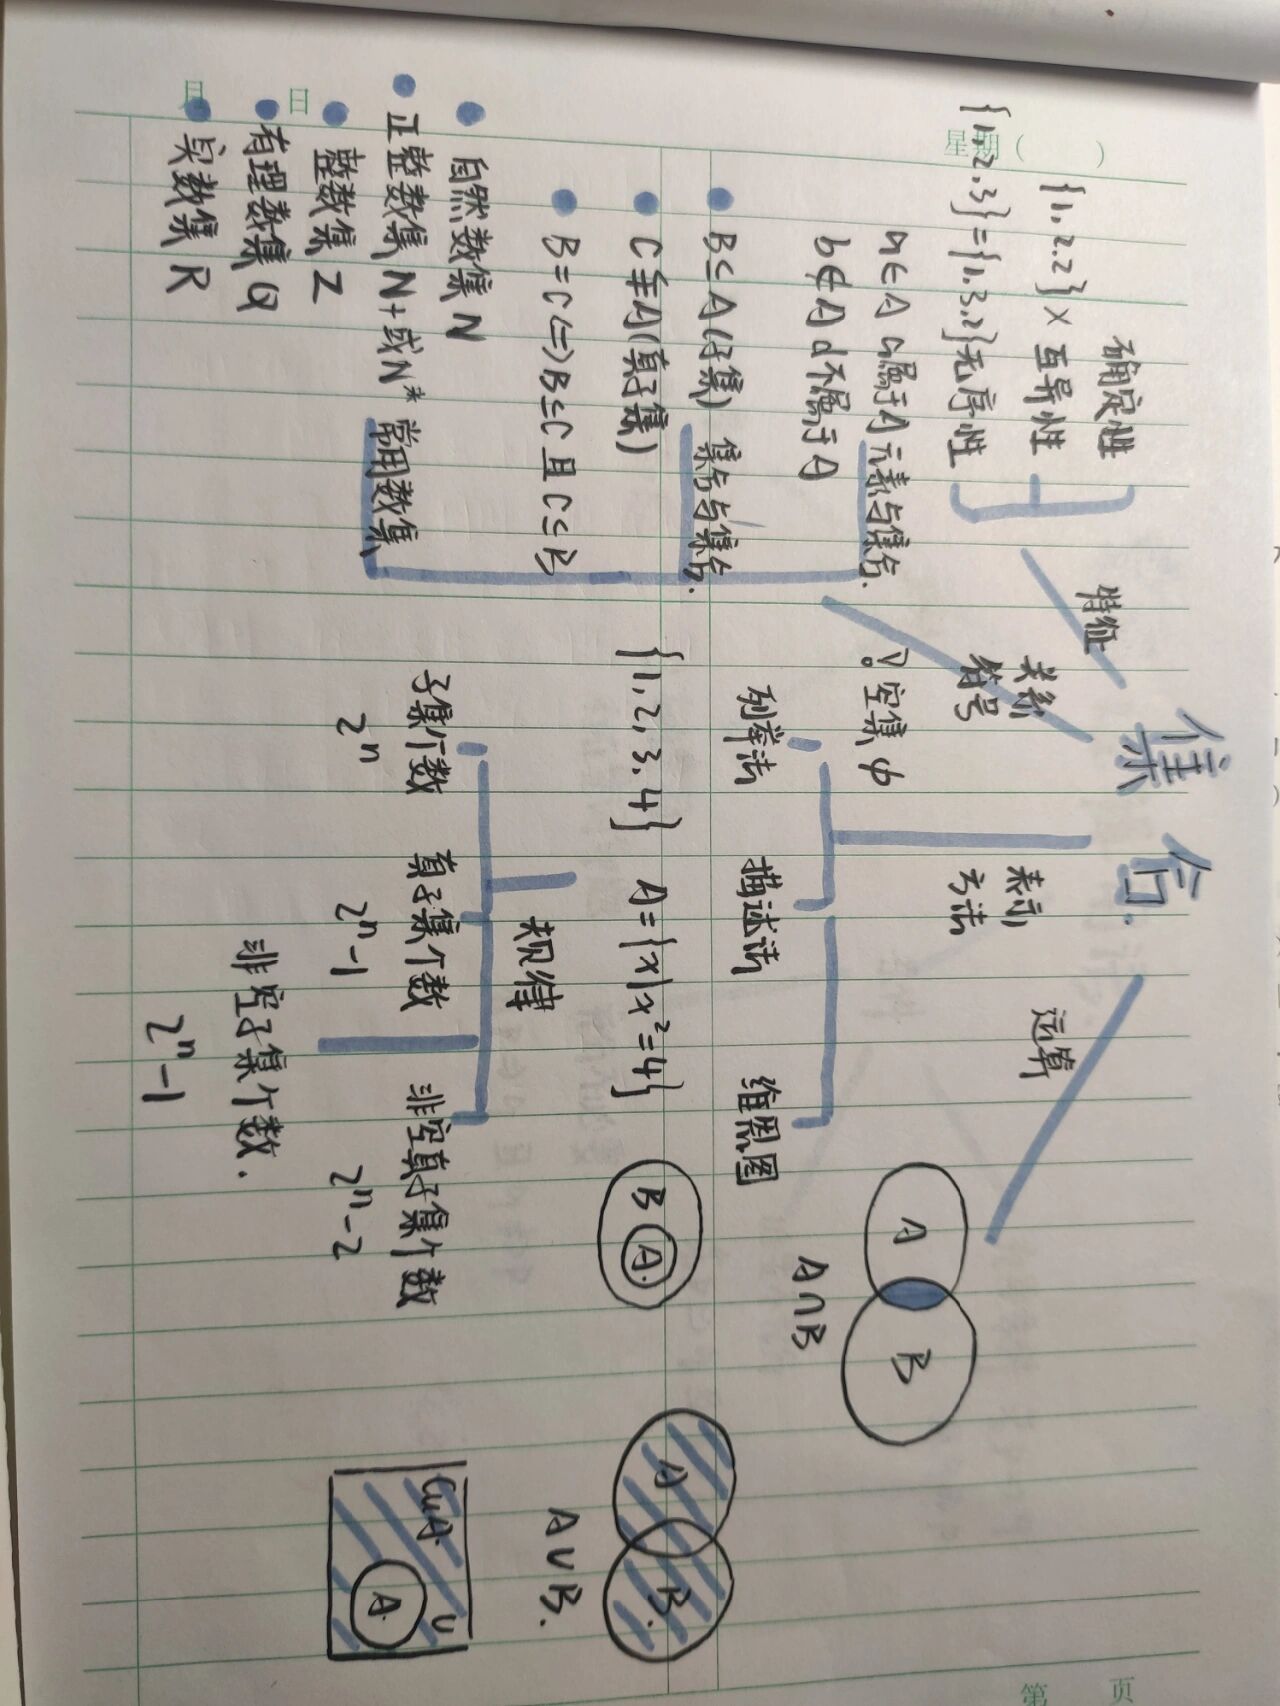 集合.
特征
确定性
{1,2.2}× 互异性
{1,2,3}={1,3,2}无序性
关系
符号
a∈A a属于A 元素与集合.
b∉A d不属于A
B⊆A(子集) 集合与集合.
C⫋A(真子集)
B=C⇔B⊆C且C⊆B
自然数集 N
正整数集 N+或N* 常用数集
整数集 Z
有理数集 Q
实数集 R
空集 ф
表示
方法
列举法 描述法 维恩图
{1,2,3,4} A={x|x²=4} B A.
规律
子集个数 真子集个数 非空真子集个数
2ⁿ 2ⁿ-1 2ⁿ-2
非空子集个数.
2ⁿ-1
运算
A B
A∩B
A B.
A∪B.
CuA. U
A.
星期( )
月 日
第 页